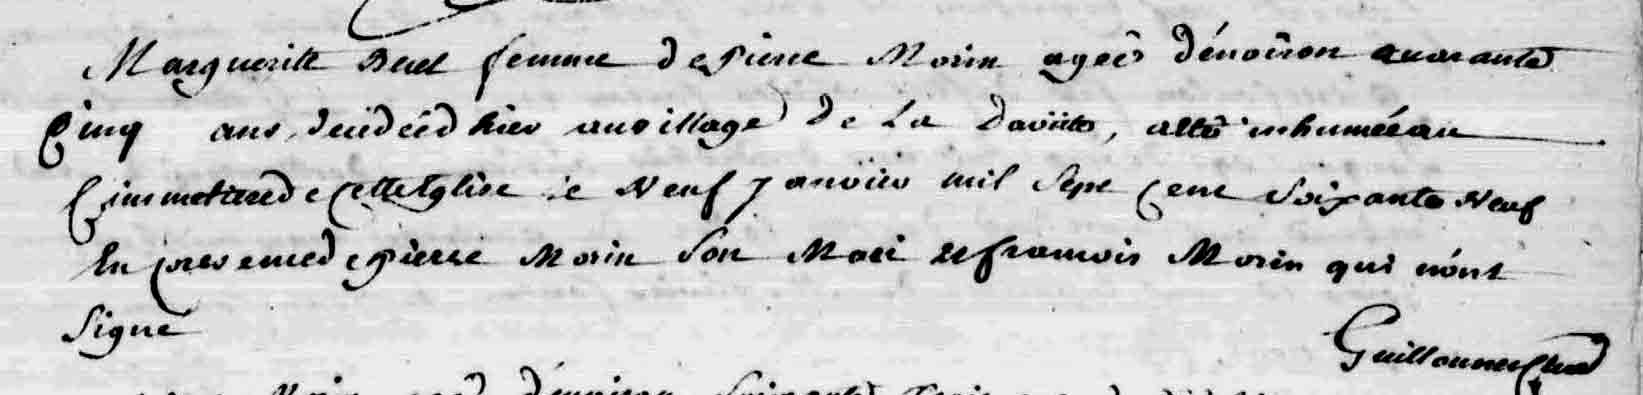 Marguerite femme de pierre Morin ageé dénoiron quarante
Cinq ans, deéedéé hier au village de La aétté inhuméé au
Cimmetiere de cette Eglise le Neuf Janvier mil Sept Cent Soixante Neuf
En presence de pierre Morin Son Mari et francois Morin qui nónt
Signe